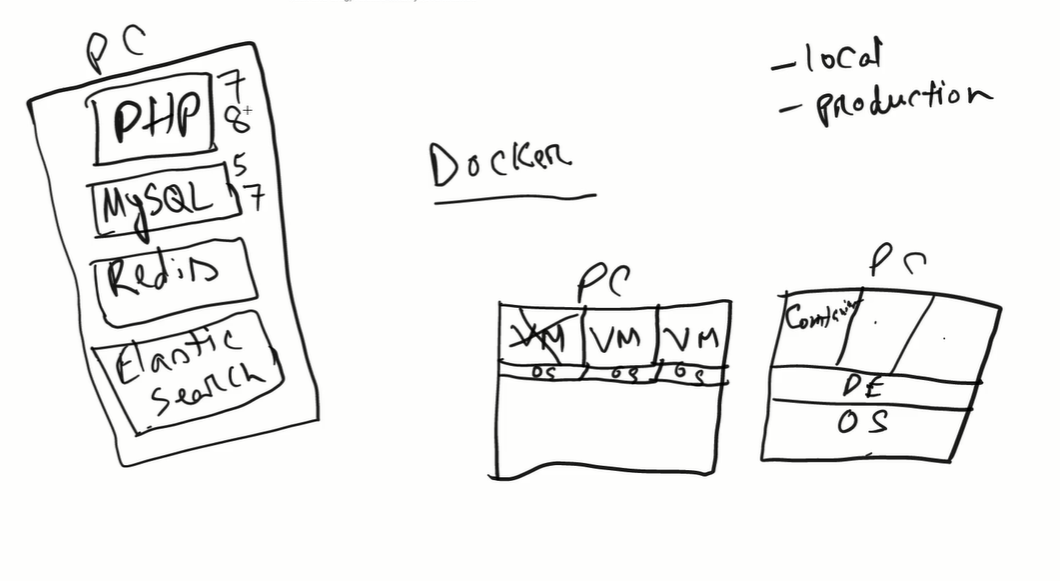 PC
PHP 7
8+
MySQL 5
7
Redis
Elastic
Search
Docker
- local
- production
PC
VM VM VM
OS OS OS
PC
Container
DE
OS